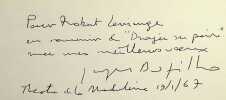 Pour Robert
en souvenir de "Drôles de père"
avec mes meilleurs vœux
Jacques Dufilho
Théâtre de la Madeleine 19/1/67